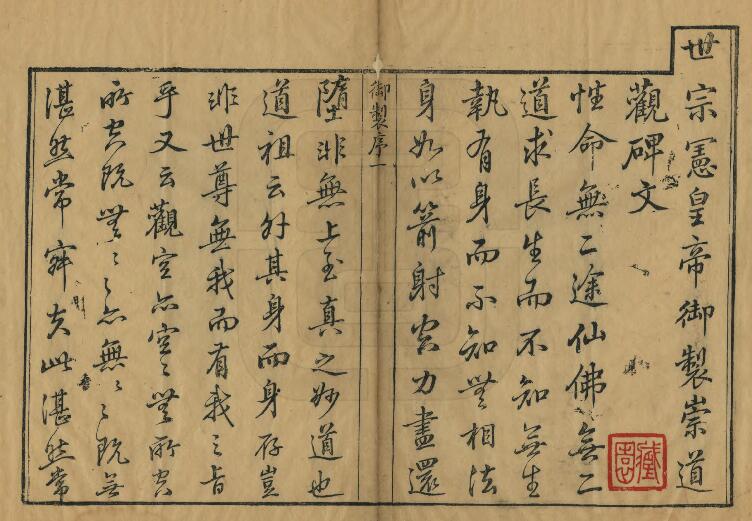 世宗憲皇帝御製崇道
觀碑文
性命無二途仙佛無二
道求長生而不知無生
執有身而不知無相法
身如以箭射空力盡還
御製序一
墮非無上至真之妙道也
道祖云外其身而身存豈
非世尊無我而有我之旨
乎又云觀空亦空空無所空
所空既無無無亦無無無既無
湛然常寂夫此湛然常